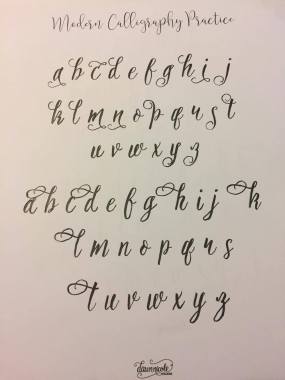 Modern Calligraphy Practice
a b c d e f g h i j
k l m n o p q r s t
u v w x y z
a b c d e f g h i j k
l m n o p q r s
t u v w x y z
dawn nicole